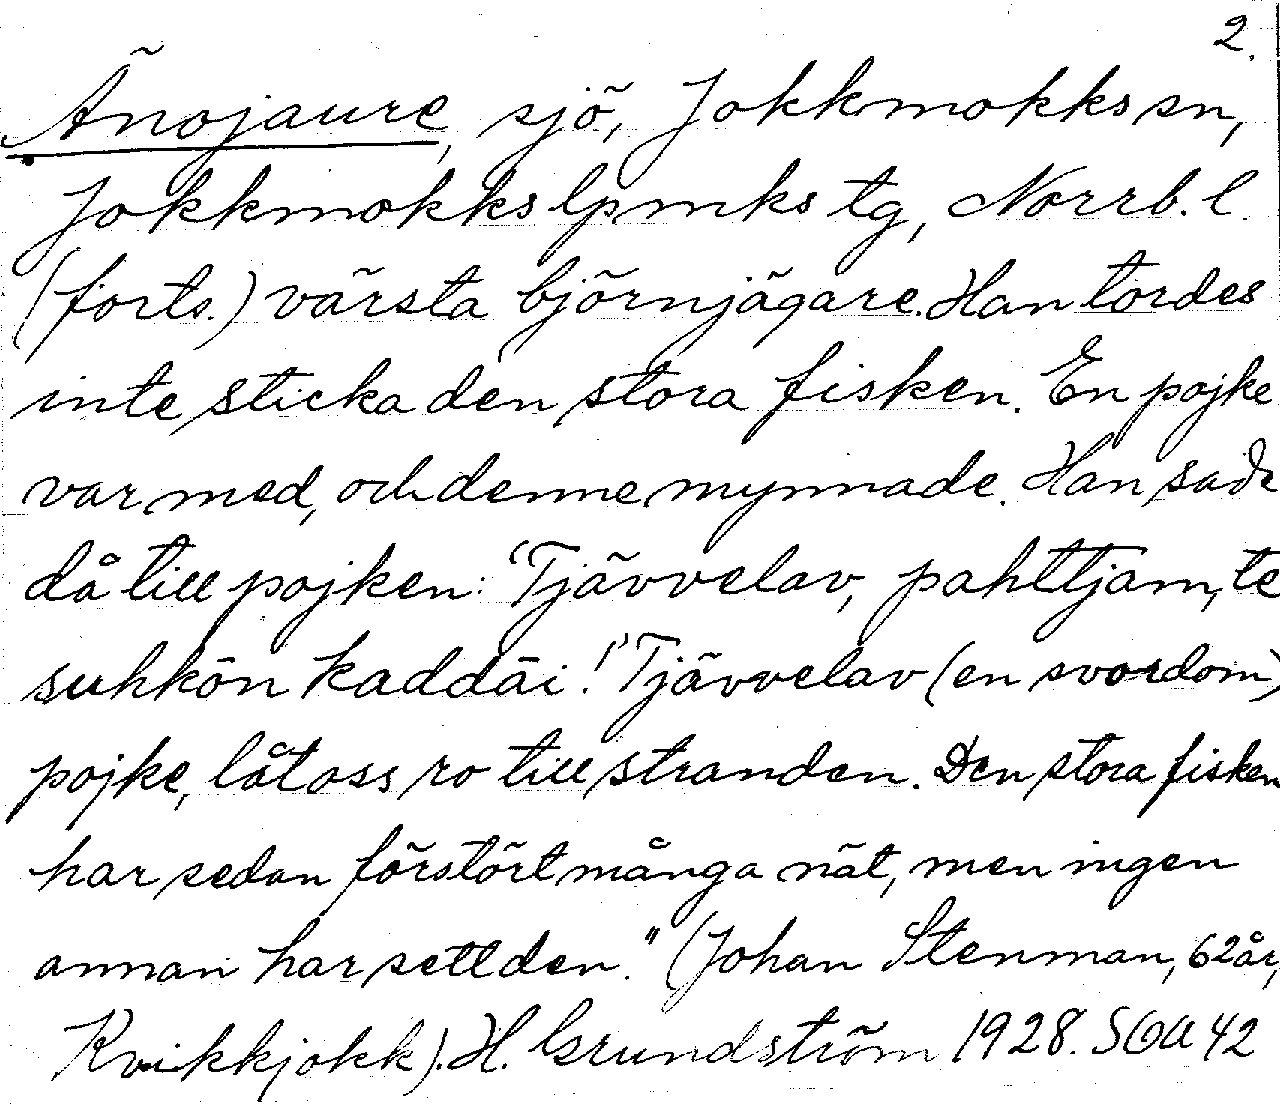 2.
Änojaure, sjö, Jokkmokks sn,
Jokkmokks lpmks tg, Norrb. l.
(forts.) värsta björnjägare. Han tordes
inte sticka den stora fisken. En pojke
var med, och denne mynnade. Han sade
då till pojken: "Tjävvelav, pahttjam, te
suhkön kaddäi!" Tjävvelav (en svordom)
pojke, låt oss ro till stranden. Den stora fisken
har sedan förstört många nät, men ingen
annan har sett den." (Johan Stenman, 62 år,
Kvikkjokk). H. Grundström 1928. SOA 42